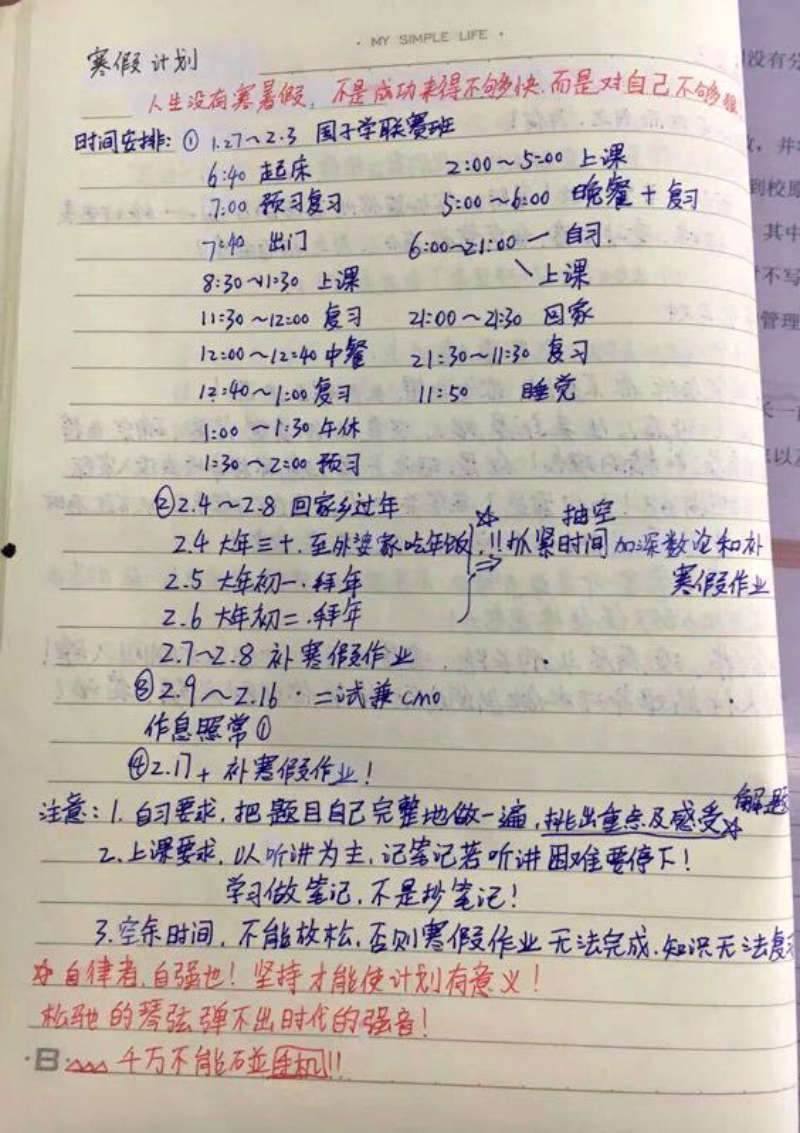 · MY SIMPLE LIFE ·
寒假计划
人生没有寒暑假，不是成功来得不够快.而是对自己不够狠
时间安排: ① 1.27～2.3 国子学联赛班
6:40 起床 2:00～5:00 上课
7:00 预习复习 5:00～6:00 晚餐+复习
7:40 出门 6:00～21:00 — 自习.
8:30～11:30 上课 \ 上课
11:30～12:00 复习 21:00～21:30 回家
12:00～12:40 中餐 21:30～11:30 复习
12:40～1:00 复习 11:50 睡觉
1:00～1:30 午休
1:30～2:00 预习
②2.4～2.8 回家乡过年 ☆ 抽空
2.4 大年三十.至外婆家吃年饭 !!抓紧时间 加深数论和补
2.5 大年初一.拜年 ⇒ 寒假作业
2.6 大年初二.拜年
2.7～2.8 补寒假作业
③2.9～2.16 · 二试兼CMO
作息照常①
④2.17+ 补寒假作业!
注意: 1. 自习要求.把题目自己完整地做一遍,挑出重点及感受☆ 解题
2.上课要求.以听讲为主,记笔记若听讲困难要停下!
学习做笔记,不是抄笔记!
3.空余时间,不能放松,否则寒假作业无法完成.知识无法复
☆自律者,自强也! 坚持才能使计划有意义!
松驰的琴弦弹不出时代的强音!
·B· 千万不能碰手机!!
没有分
，并
到校原
其中
不写
管理